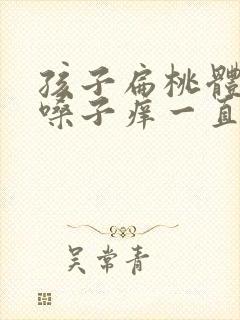 孩子扁桃體
嗓子痒一直
吴常青